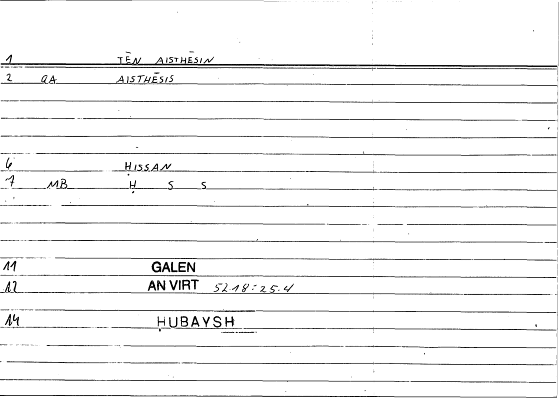 1 TĒN AISTHĒSIN
2 QA AISTHĒSIS
6 ḤISSAN
7 MB Ḥ S S
11 GALEN
12 AN VIRT 52.18 : 25.4
14 ḤUBAYSH